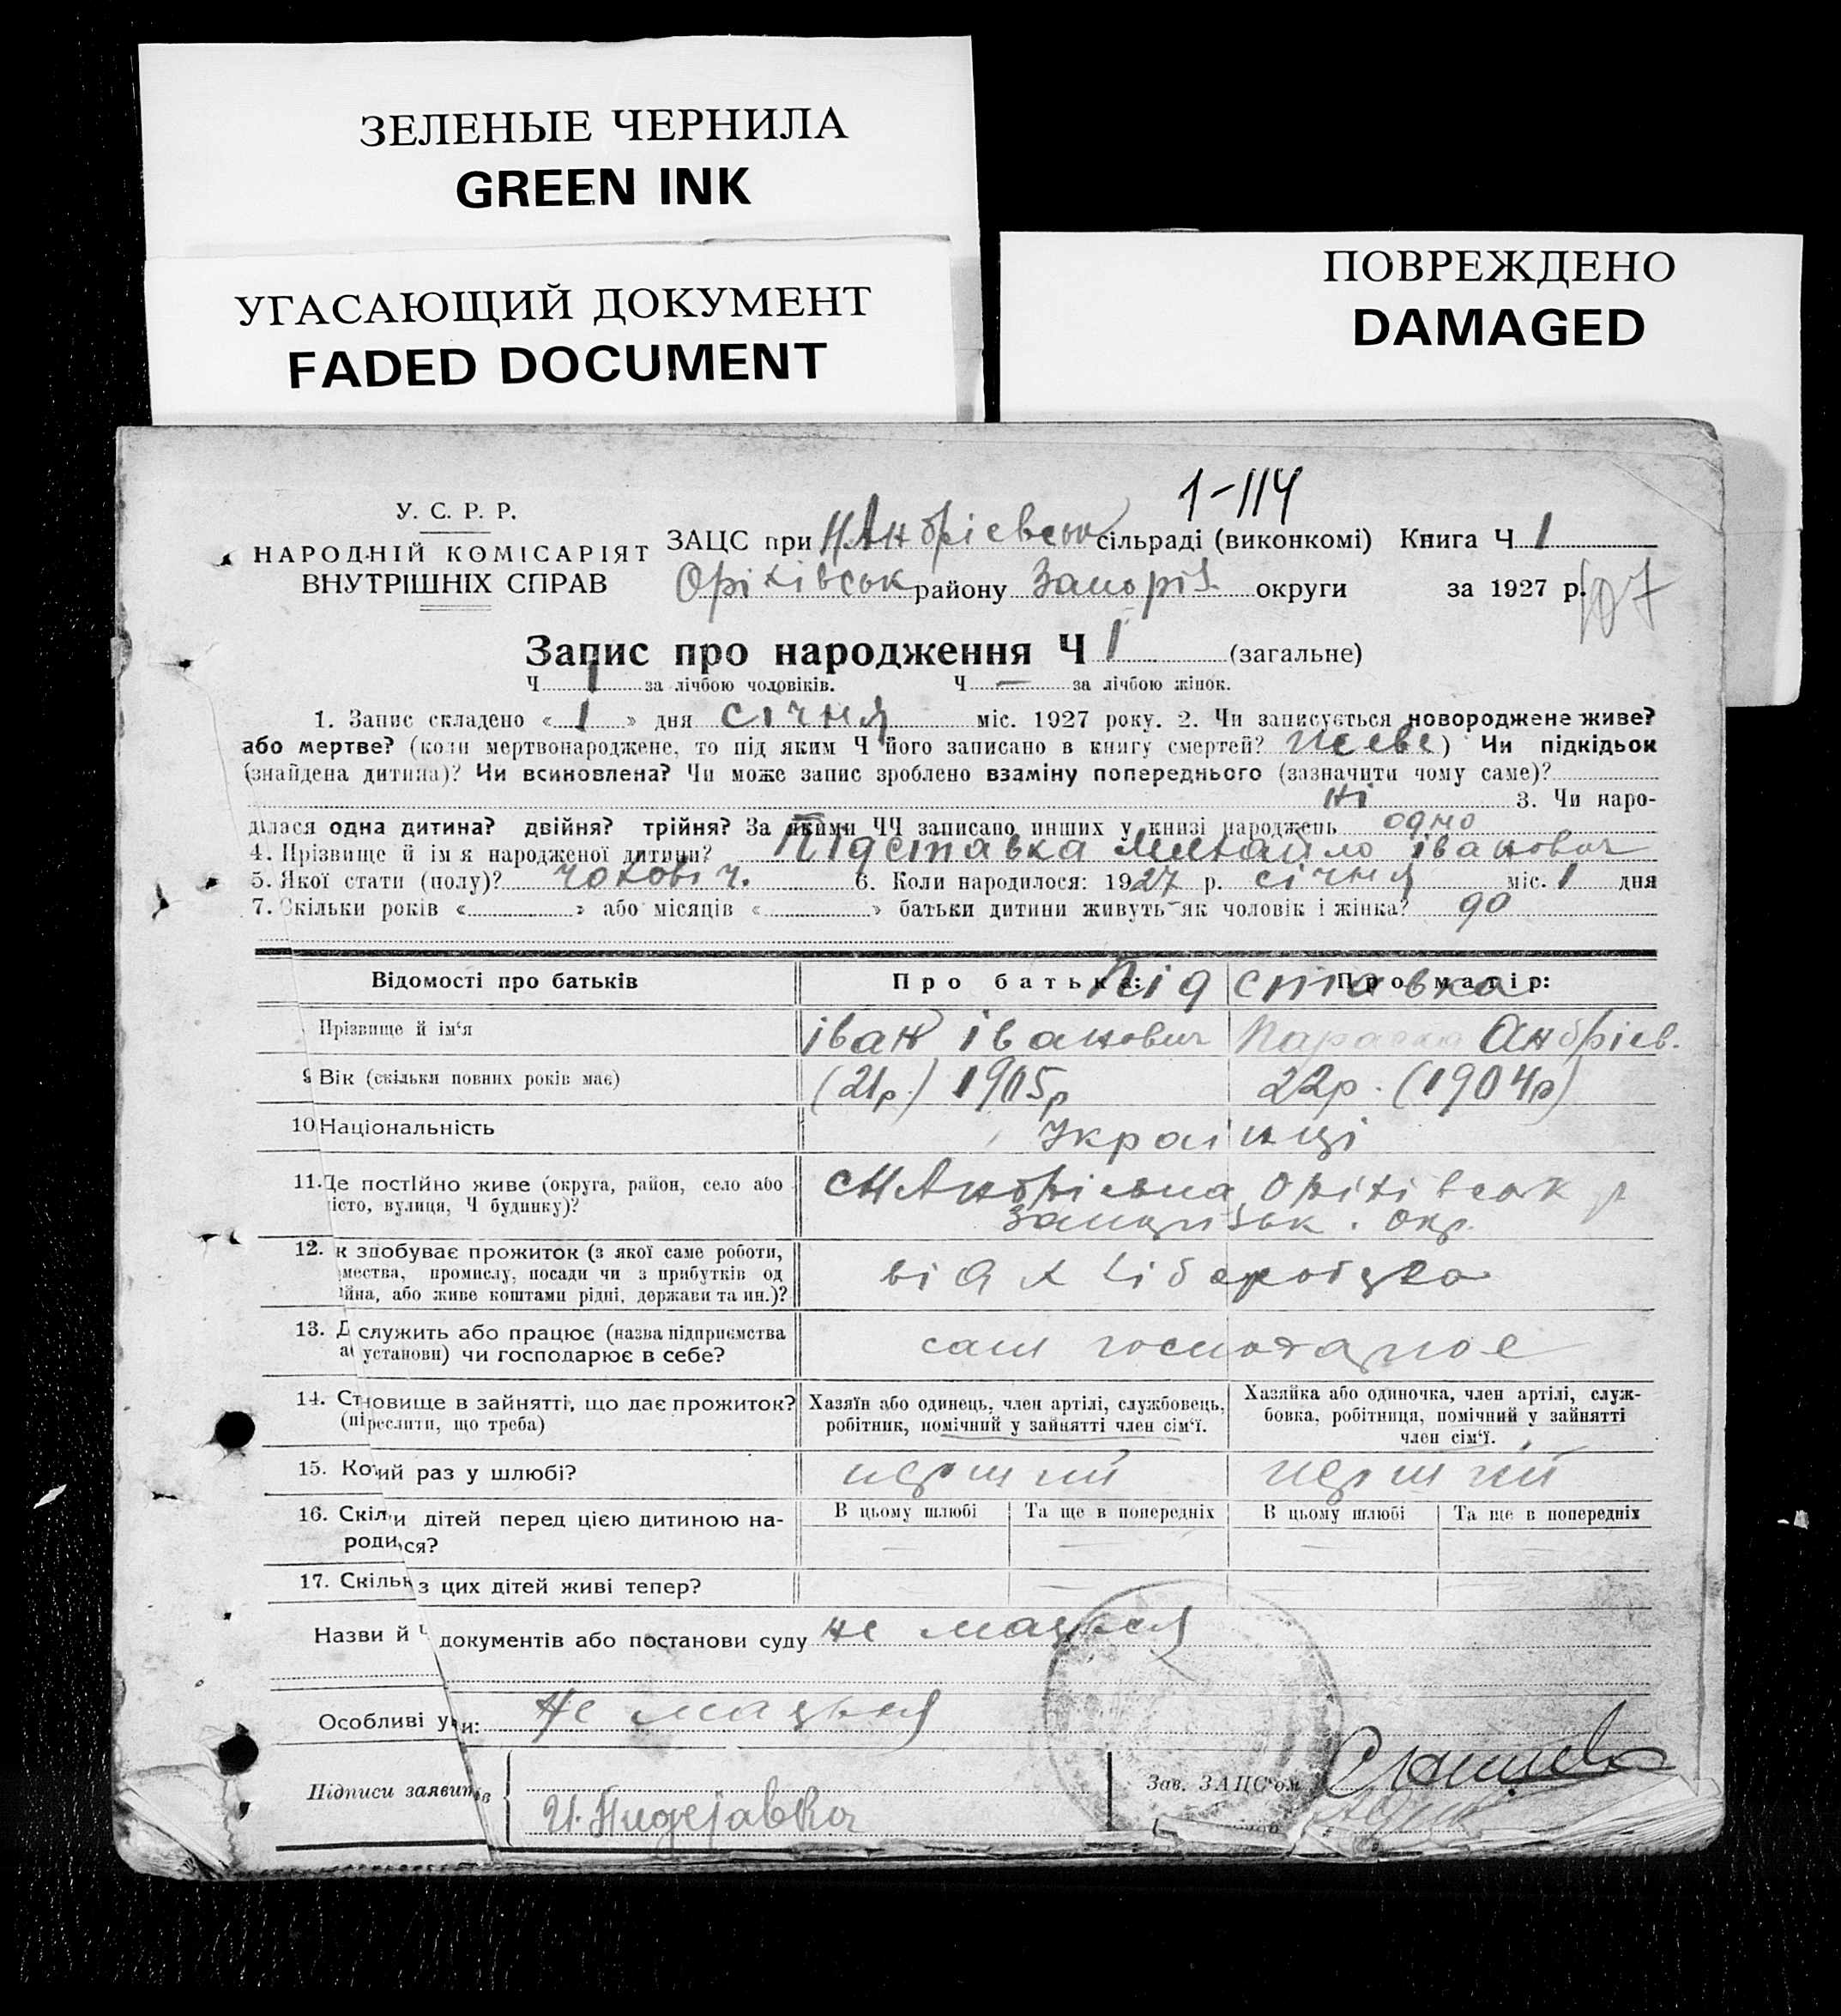 ЗЕЛЕНЫЕ ЧЕРНИЛА
GREEN INK
УГАСАЮЩИЙ ДОКУМЕНТ
FADED DOCUMENT
ПОВРЕЖДЕНО
DAMAGED
1-114
У. С. Р. Р.
НАРОДНІЙ КОМІСАРІЯТ
ВНУТРІШНІХ СПРАВ
ЗАЦС при Н Андрієвськ сільраді (виконкомі) Книга Ч 1
Оріхівськ району Запоріз. округи за 1927 р.
107
Запис про народження Ч 1 (загальне)
Ч 1 за лічбою чоловіків. Ч — за лічбою жінок.
1. Запис складено « 1 » дня січня міс. 1927 року. 2. Чи записується новороджене живе?
або мертве? (коли мертвонароджене, то під яким Ч його записано в книгу смертей? живе) Чи підкідьок
(знайдена дитина)? Чи всиновлена? Чи може запис зроблено взаміну попереднього (зазначити чому саме)?
ні 3. Чи наро-
дилася одна дитина? двійня? трійня? За якими ЧЧ записано инших у книзі народжень одно
4. Прізвище й ім'я народженої дитини? Підставка Михайло іванович
5. Якої стати (полу)? чоловіч. 6. Коли народилося: 1927 р. січня міс. 1 дня
7. Скільки років « » або місяців « » батьки дитини живуть як чоловік і жінка? 90
Відомості про батьків Про батька: Про матір:
Підставка
Прізвище й ім'я іван іванович Параска Андрієв.
9 Вік (скільки повних років має) (21р.) 1905р 22р. (1904р)
10 Національність Українці
11. Де постійно живе (округа, район, село або
істо, вулиця, Ч будинку)? с Н Андрієвка Оріхівськ р
Запорізьк. окр.
12. к здобуває прожиток (з якої саме роботи,
мества, промислу, посади чи з прибутків од
йна, або живе коштами рідні, держави та ин.)? від хліборобства
13. Д служить або працює (назва підприємства
а установи) чи господарює в себе? сам господарює
14. Становище в зайнятті, що дає прожиток?
(підкреслити, що треба)
Хазяїн або одинець, член артілі, службовець,
робітник, помічний у зайнятті член сім'ї.
Хазяйка або одиночка, член артілі, служ-
бовка, робітниця, помічний у зайнятті
член сім'ї.
15. Котрий раз у шлюбі? перший перший
16. Скільки дітей перед цією дитиною на-
родилося?
В цьому шлюбі Та ще в попередніх В цьому шлюбі Та ще в попередніх
17. Скільк з цих дітей живі тепер?
Назви й Ч документів або постанови суду не мається
Особливі у и: Не мається
Підписи заявит ів
И. Пидставка
Зав. ЗАЦС'ом